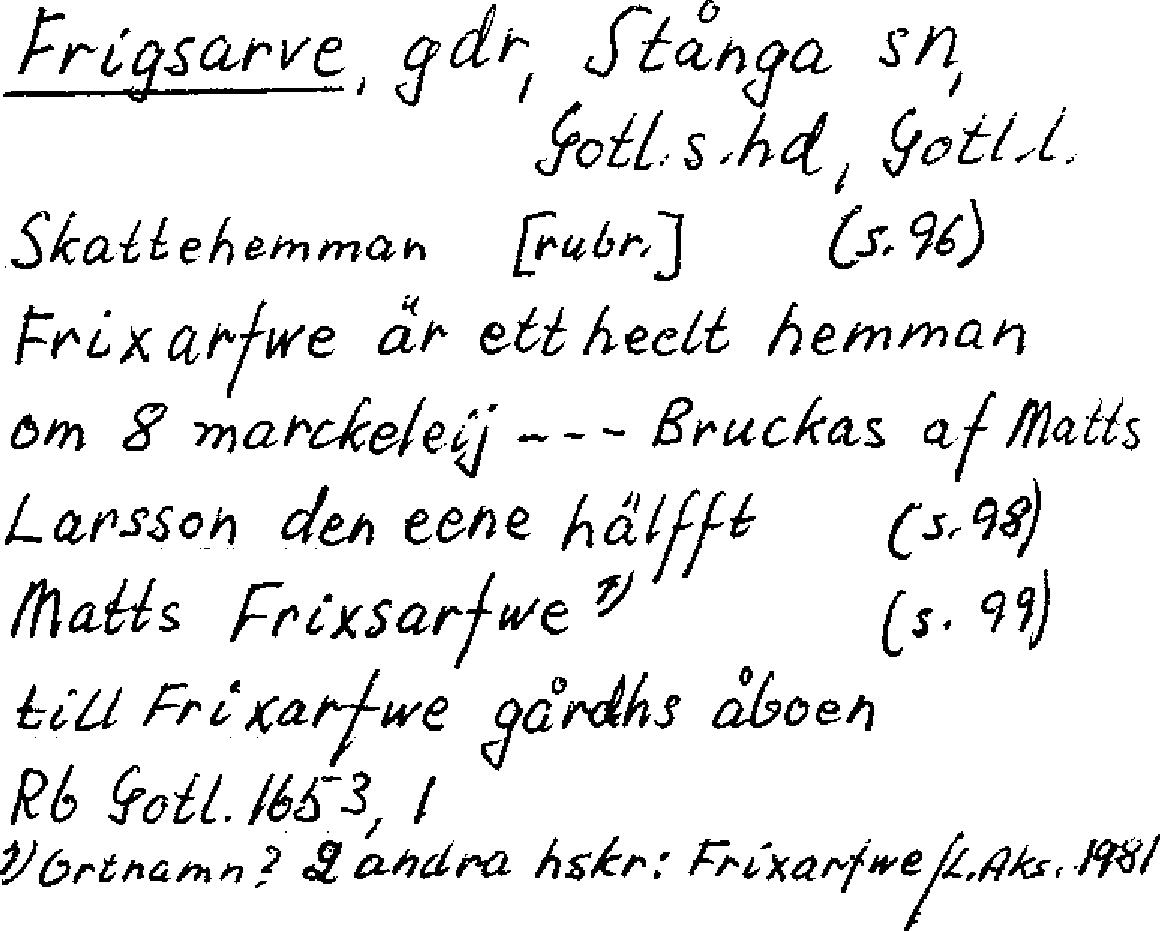 Frigsarve, gdr, Stånga sn,
Gotl. s. hd, Gotl. l.
Skattehemman [rubr.] (s. 96)
Frixarfwe är ett heelt hemman
om 8 marckeleij --- Bruckas af Matts
Larsson den eene hälfft (s. 98)
Matts Frixsarfwe 1) (s. 99)
till Frixarfwe gårdhs åboen
Rb Gotl. 1653, 1
1) Ortnamn? 2 andra hskr: Frixarfwe /L. Aks. 1981